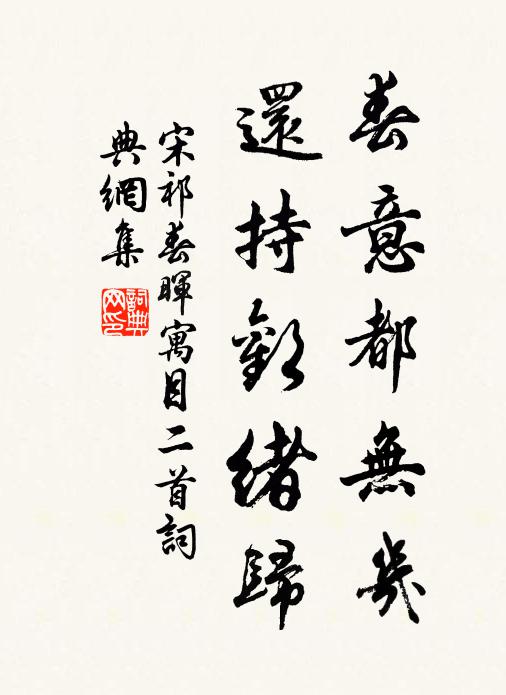 春意都無幾
還持歡緒歸
宋祁春暉寓目二首詞
典網集
詞典網印